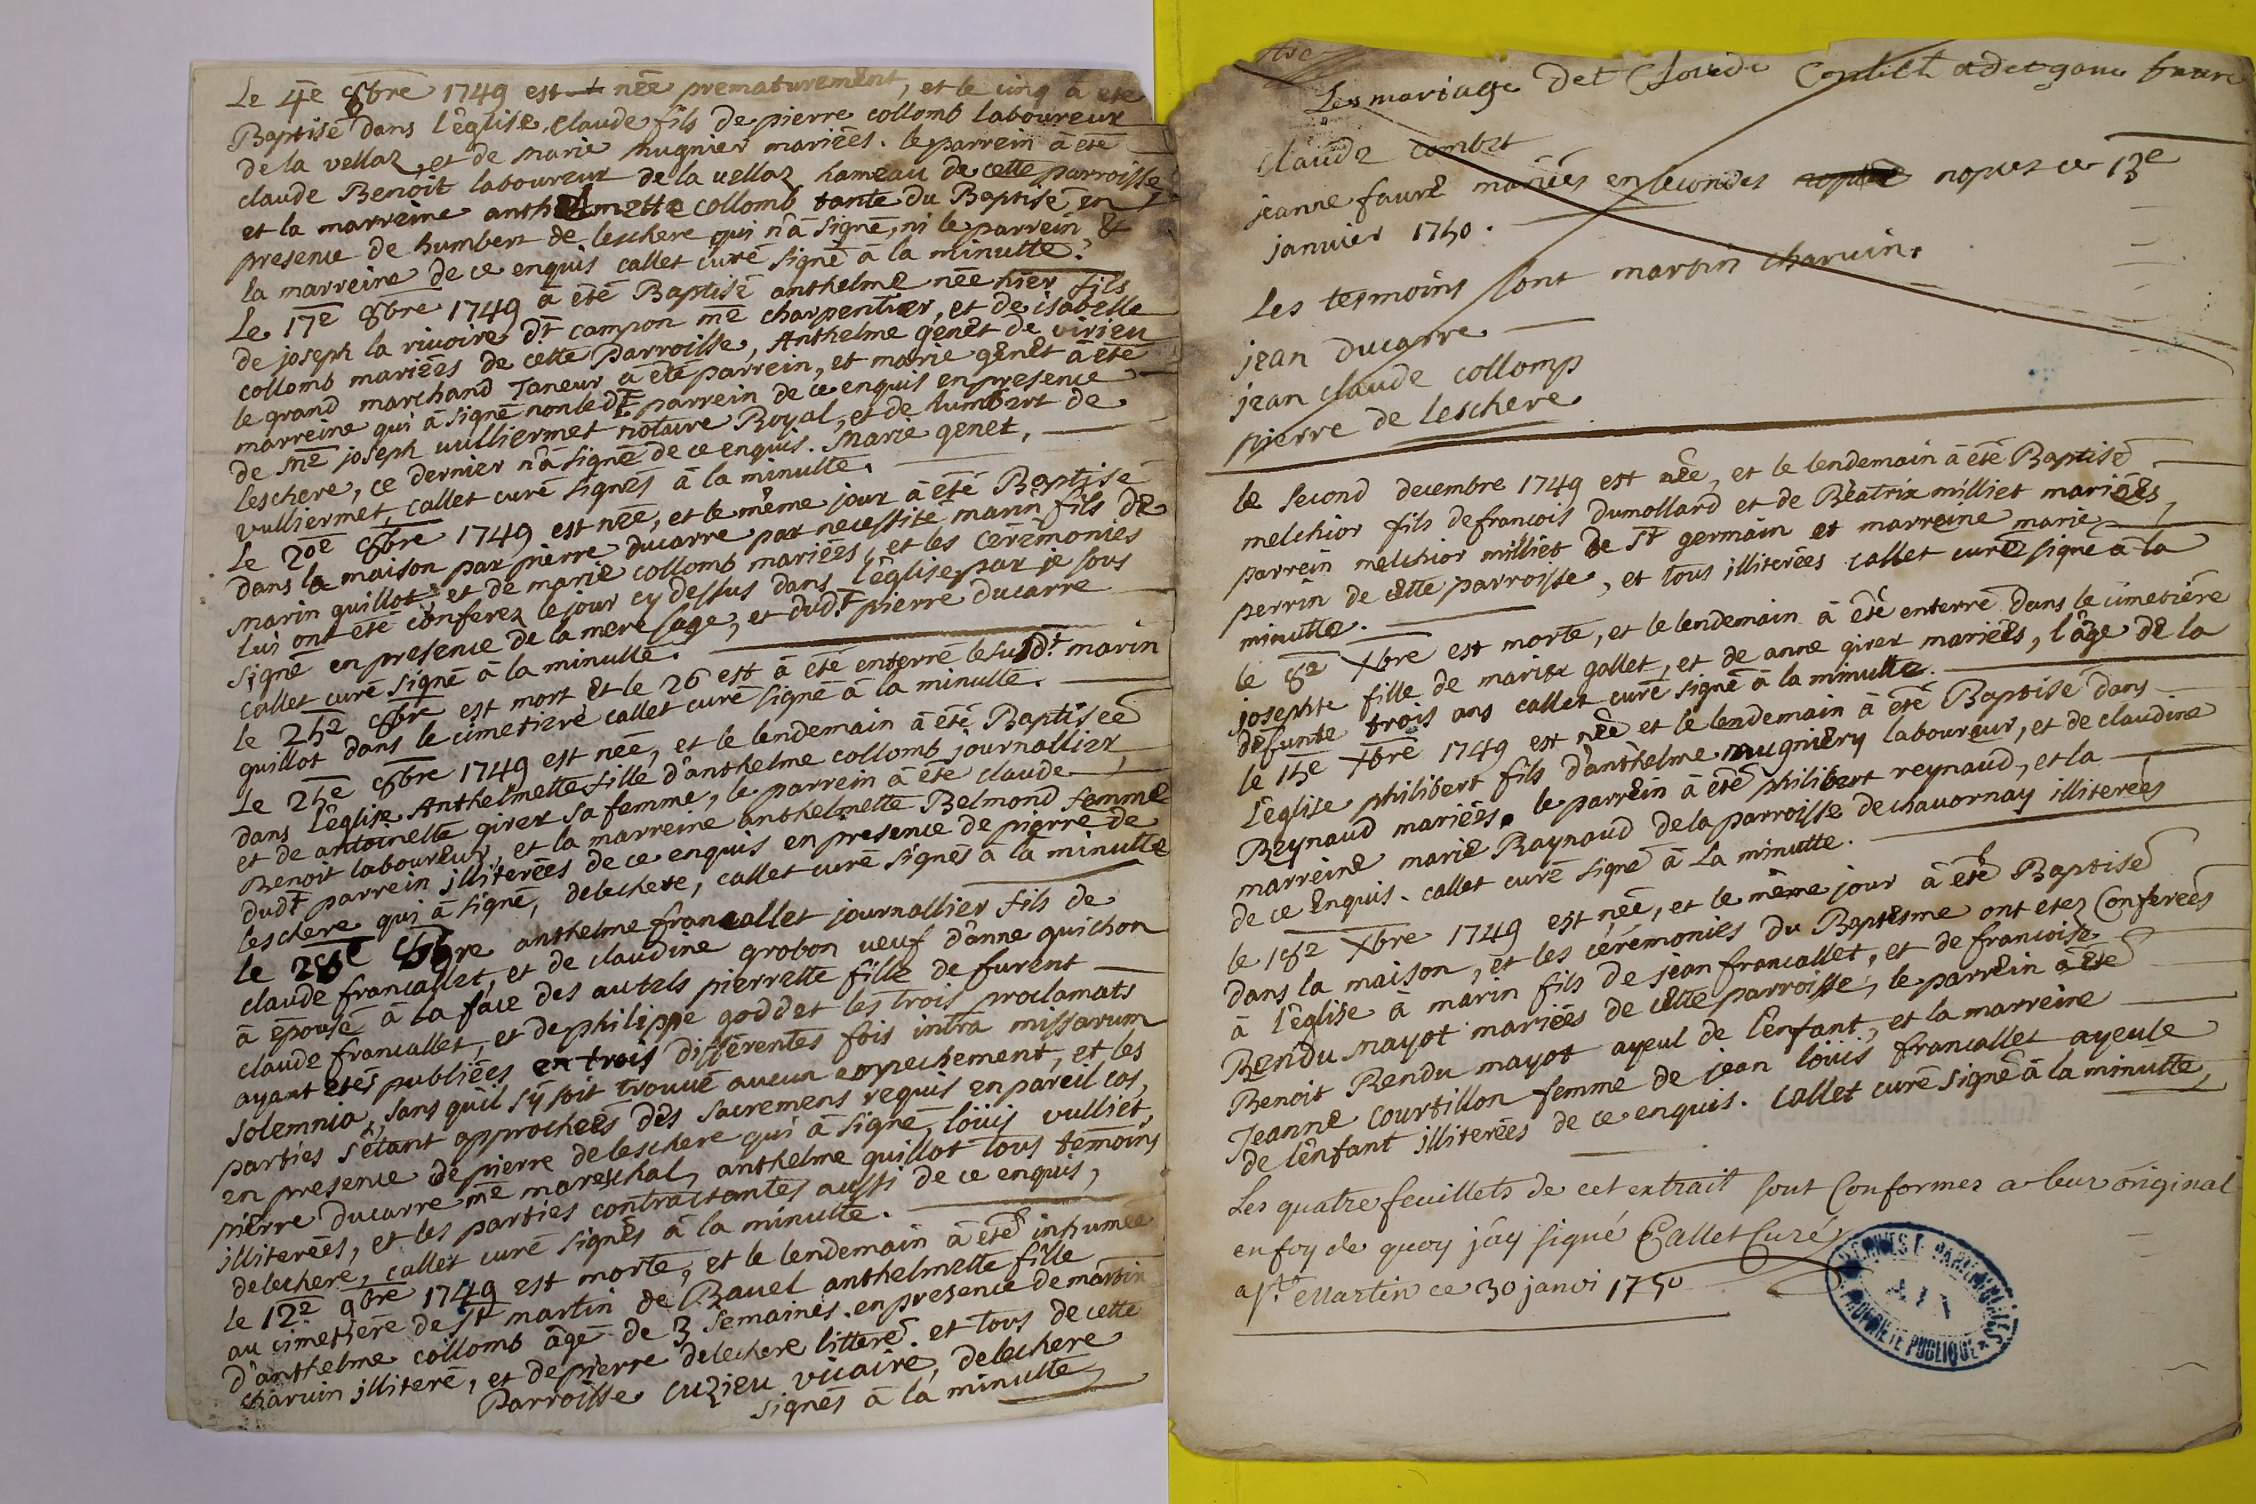 Le 4e 8bre 1749 est née prematurement, et le cinq à eté
Baptisé dans l'église, Claude fils de pierre collomb laboureur
de la vellaz, et de marie mugnier mariées. le parrein à été
claude Benoit laboureur de la vellaz hameau de cette parroisse
et la marreine anthelmette collomb tante du Baptisé en
presence de humbert de leschere qui n'à signé, ni le parrein &
la marreine de ce enquis callet curé signé à la minutte.
Le 17e 8bre 1749 à été Baptisé anthelme née hier fils
de joseph la rivoire dt campon me charpentier, et de isabelle
collomb mariées de cette parroisse, Anthelme genet de virieu
le grand marchand Taneur à été parrein, et marie genet à été
marreine qui à signé non le dt parrein de ce enquis en presence
de me joseph vulliermet notaire Royal, et de humbert de
leschere, ce dernier n'à signé de ce enquis. Marie genet,
vulliermet, callet curé signés à la minutte.
Le 20e 8bre 1749 est née, et le même jour à été Baptisé
dans la maison par pierre ducarre par necessité marin fils de
marin guillot, et de marie collomb mariées, et les cérémonies
lui ont été conferez le jour cy dessus dans l'église par je sous
signé en presence de la mere sage, et dudt pierre ducarre
callet curé signé à la minutte.
le 25e 8bre est mort et le 26 est à été enterré le susdt marin
guillot dans le cimetiere callet curé signé à la minutte.
Le 25e 8bre 1749 est née, et le lendemain à été Baptisée
dans l'église Anthelmette fille d'anthelme collomb journallier
et de antoinette girer sa femme, le parrein à été claude
Benoit laboureur, et la marreine anthelmette Belmond femme
dudt parrein illiterées de ce enquis en presence de pierre de
leschere qui à signé, delechere, callet curé signés à la minutte
le 28e 8bre anthelme francallet journallier fils de
claude francallet, et de claudine grobon veuf d'anne guichon
à épousé à la face des autels pierrette fille de furent
claude francallet, et de philippe goddet les trois proclamats
ayant etés publiées en trois differentes fois intra missarum
solemnia, sans qu'il s'y soit trouvé aucun empechement, et les
parties s'étant approchées des sacremens requis en pareil cas,
en presence de pierre deleschere qui à signé, loüis vulliet,
pierre ducarre me mareschal, anthelme guillot tous temoins
illiterées, et les parties contractantes aussi de ce enquis,
delechere, callet curé signés à la minutte.
le 12e 9bre 1749 est morte, et le lendemain à été inhumée
au cimetiere de st martin de Bavel anthelmette fille
d'anthelme collomb âgé de 3 semaines. en presence de martin
charvin illiteré, et de pierre delechere litteré. et tous de cette
Parroisse cuzieu vicaire, delechere
signés à la minutte
Les mariage det Cloude Combet adetgane faure
Claude combet
jeanne faure mariées en secondes nopces ce 13e
janvier 1750.
Les tesmoins sont martin charvin.
jean ducarre
jean claude collomp
pierre de leschere
le second decembre 1749 est née, et le lendemain à été Baptisé
melchior fils de francois dumollard et de Béatrix milliet mariées,
parrein melchior milliet de st germain et marreine marie
perrin de cette parroisse, et tous illiterées callet curé signé à la
minutte.
le 8e Xbre est morte, et le lendemain à été enterré dans le cimetière
josephte fille de mariez gallet, et de anne girer mariées, l'âge de la
défunte trois ans callet curé signé à la minutte.
le 15e Xbre 1749 est née et le lendemain à été Baptisé dans
l'église philibert fils d'anthelme mugniery laboureur, et de claudine
Reynaud mariées. le parrein à été philibert reynaud, et la
marreine marie Raynaud de la parroisse de chavornay illiterées
de ce enquis. callet curé signé à la minutte.
le 18e Xbre 1749 est née, et le même jour à été Baptisé
dans la maison, et les cérémonies du Baptesme ont etez Conferées
à l'église à marin fils de jean francallet, et de francoise
Rendu mayot mariées de cette parroisse, le parrein à été
Benoit Rendu mayot ayeul de l'enfant, et la marreine
Jeanne Courtillon femme de jean loüis francallet ayeule
de l'enfant illiterées de ce enquis. Callet curé signé à la minutte,
Les quatre feuillets de cet extrait sont Conformes a leur original
en foy de quoy jây signé Callet Curé
a st. Martin ce 30 janvi 1750
PROPRIETE PUBLIQUE